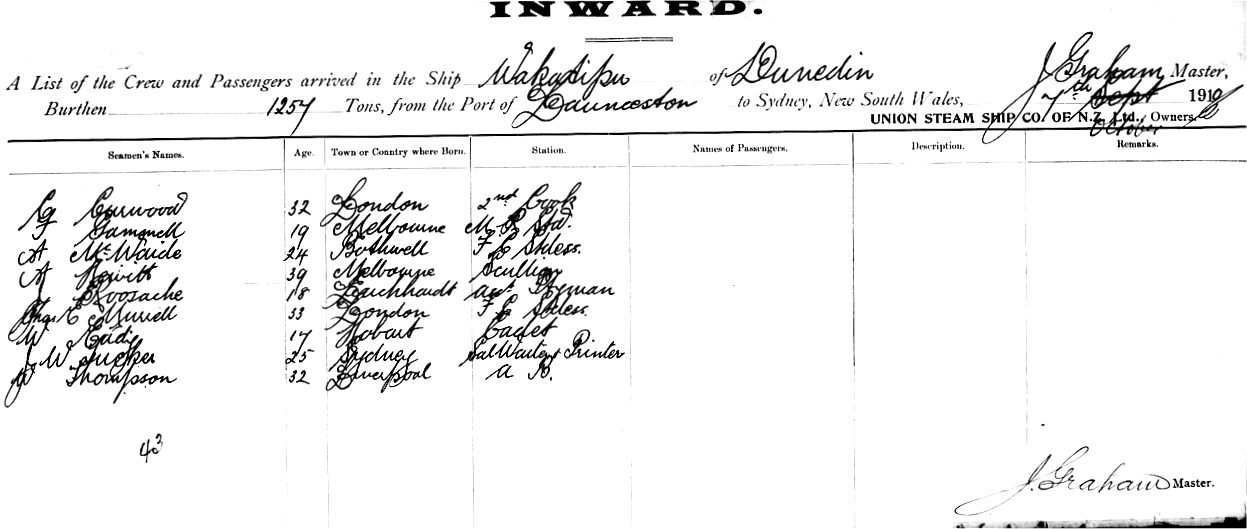 INWARD.
A List of the Crew and Passengers arrived in the Ship Wakatipu of Dunedin J Graham Master,
Burthen 1257 Tons, from the Port of Launceston to Sydney, New South Wales, 7th Sept 1910
UNION STEAM SHIP CO. OF N.Z. Ltd., Owners
October
Seamen's Names. Age. Town or Country where Born. Station. Names of Passengers. Description. Remarks.
G 32 London 2nd Cook
19 Melbourne
A McWaide 24 Bothwell F C Stdess.
A Hewitt 39 Melbourne Scullion
J 18 Leichhardt
Chas E Murrell 33 London F C Stdess.
W Eady 17 Hobart Cadet
J W Tucker 25 Sydney Sal Waiter & Printer
W Thompson 32 Liverpool A B.
43
J. Graham Master.